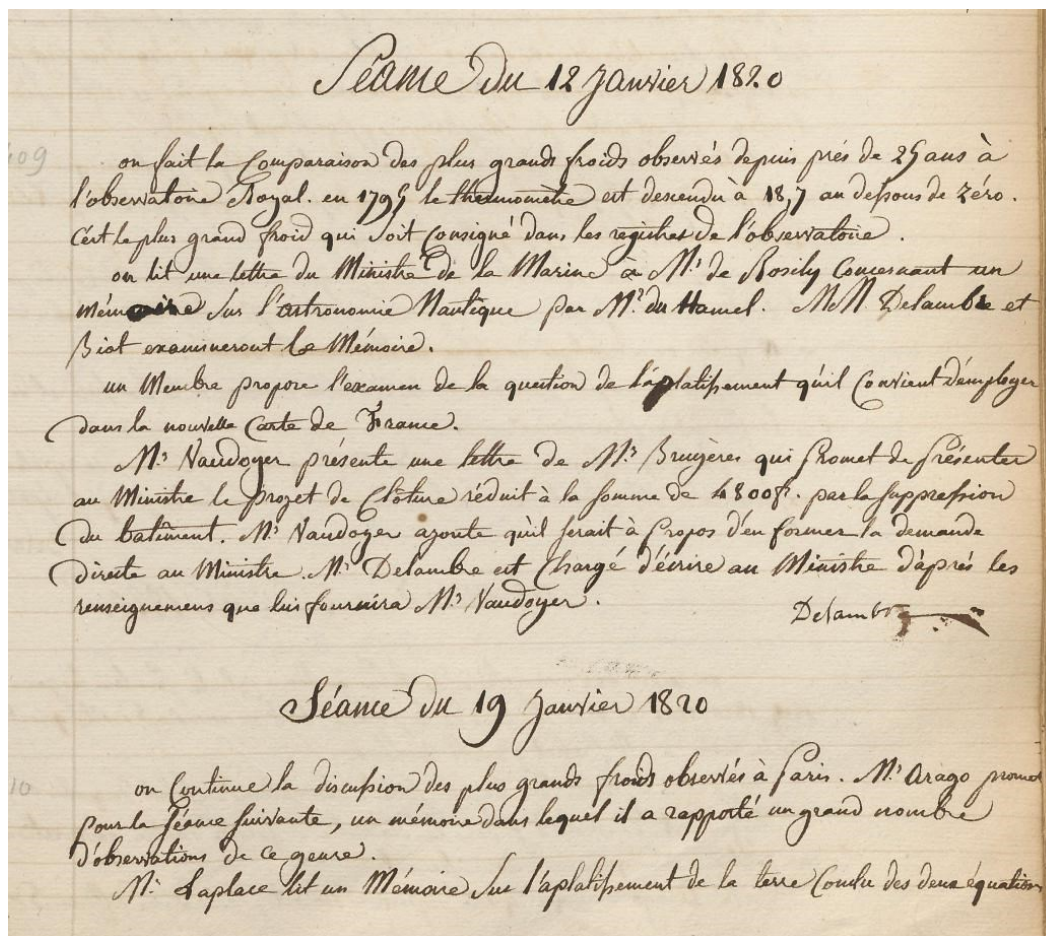 Séance du 12 Janvier 1820
109
on fait la Comparaison des plus grands froids observés depuis près de 25 ans à
l'observatoire Royal. en 1795 le thermomètre est descendu à 18,7 au dessous de zéro.
C'est le plus grand froid qui soit Consigné dans les registres de l'observatoire.
on lit une lettre du Ministre de la Marine à Mr de Rosily Concernant un
mémoire sur l'astronomie Nautique par Mr. du Hamel. MM Delambre et
Biot examineront le Mémoire.
un Membre propose l'examen de la question de l'aplatissement qu'il Convient d'employer
dans la nouvelle Carte de France.
Mr Vaudoyer présente une lettre de Mr Bruyères qui Promet de Présenter
au Ministre le projet de Clôture réduit à la somme de 4800f. par la suppression
du batîment. Mr Vaudoyer ajoute qu'il serait à Propos d'en former la demande
directe au Ministre. Mr Delambre est Chargé d'écrire au Ministre d'après les
renseignemens que lui fournira Mr Vaudoyer.
Delambre
Séance du 19 Janvier 1820
10
on Continue la discussion des plus grands froids observés à Paris. Mr Arago promet
pour la Séance suivante, un mémoire dans lequel il a rapporté un grand nombre
d'observations de ce genre.
Mr Laplace lit un Mémoire sur l'aplatissement de la terre Conclu des deux équations